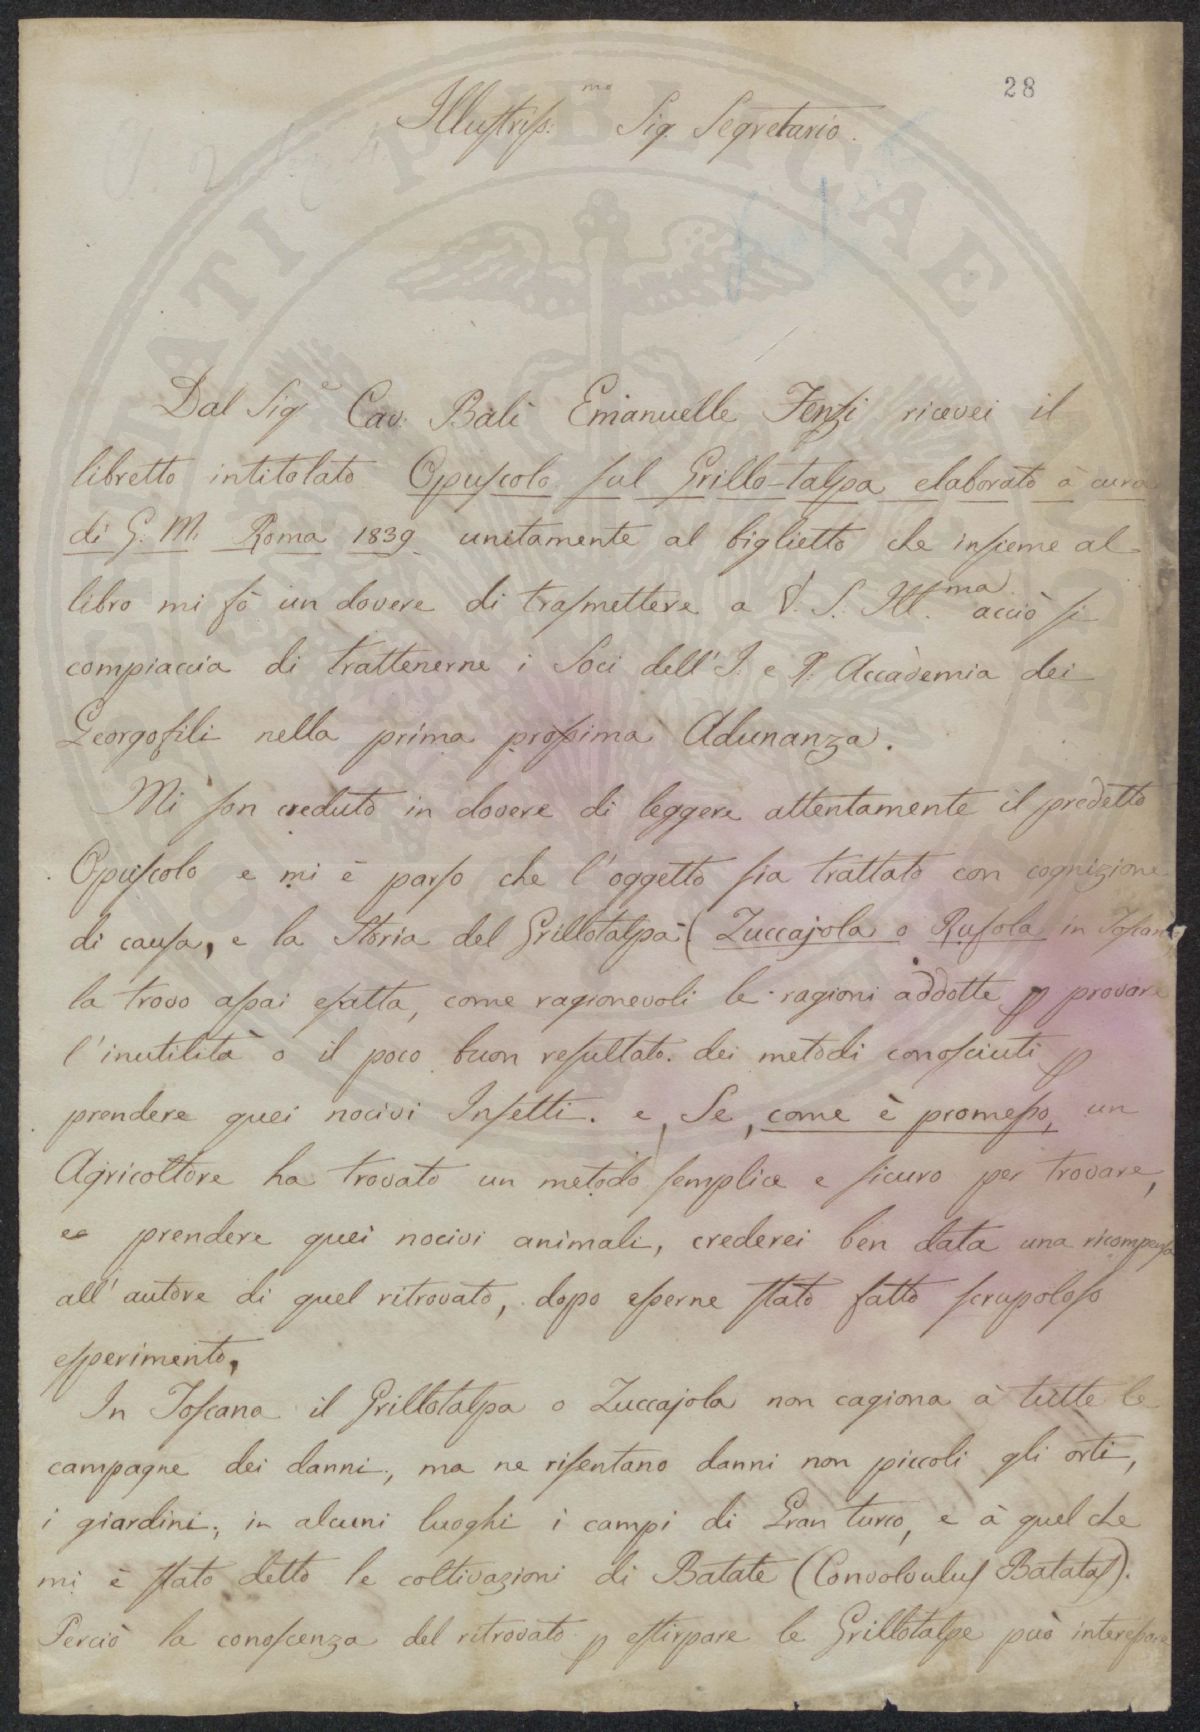 28
Illustriss:mo Sig. Segretario.
Dal Sige Cav: Balì Emanuelle Fenzi ricevei il
libretto intitolato Opuscolo sul Grillo-talpa elaborato à cura
di G. M. Roma 1839 unitamente al biglietto che insieme al
libro mi fò un dovere di trasmettere a V. S. Ill.ma acciò si
compiaccia di trattenerne i Soci dell' I. e R. Accademia dei
Georgofili nella prima prossima Adunanza.
Mi son creduto in dovere di leggere attentamente il predetto
Opuscolo e mi è parso che l'oggetto sia trattato con cognizione
di causa, e la Storia del Grillotalpa (Zuccajola o Rufola in Toscana)
la trovo assai esatta, come ragionevoli le ragioni addotte p provare
l'inutilità o il poco buon resultato dei metodi conosciuti p
prendere quei nocivi Insetti. e, Se, come è promesso, un
Agricoltore ha trovato un metodo semplice e sicuro per trovare,
e prendere quei nocivi animali, crederei ben data una ricompensa
all'autore di quel ritrovato, dopo esserne stato fatto scrupoloso
esperimento.
In Toscana il Grillotalpa o Zuccajola non cagiona à tutte le
campagne dei danni, ma ne risentano danni non piccoli gli orti,
i giardini, in alcuni luoghi i campi di Gran turco, e à quel che
mi è stato detto le coltivazioni di Batate (Convolvulus Batatas).
Perciò la conoscenza del ritrovato p estirpare le Grillotalpe può interessare